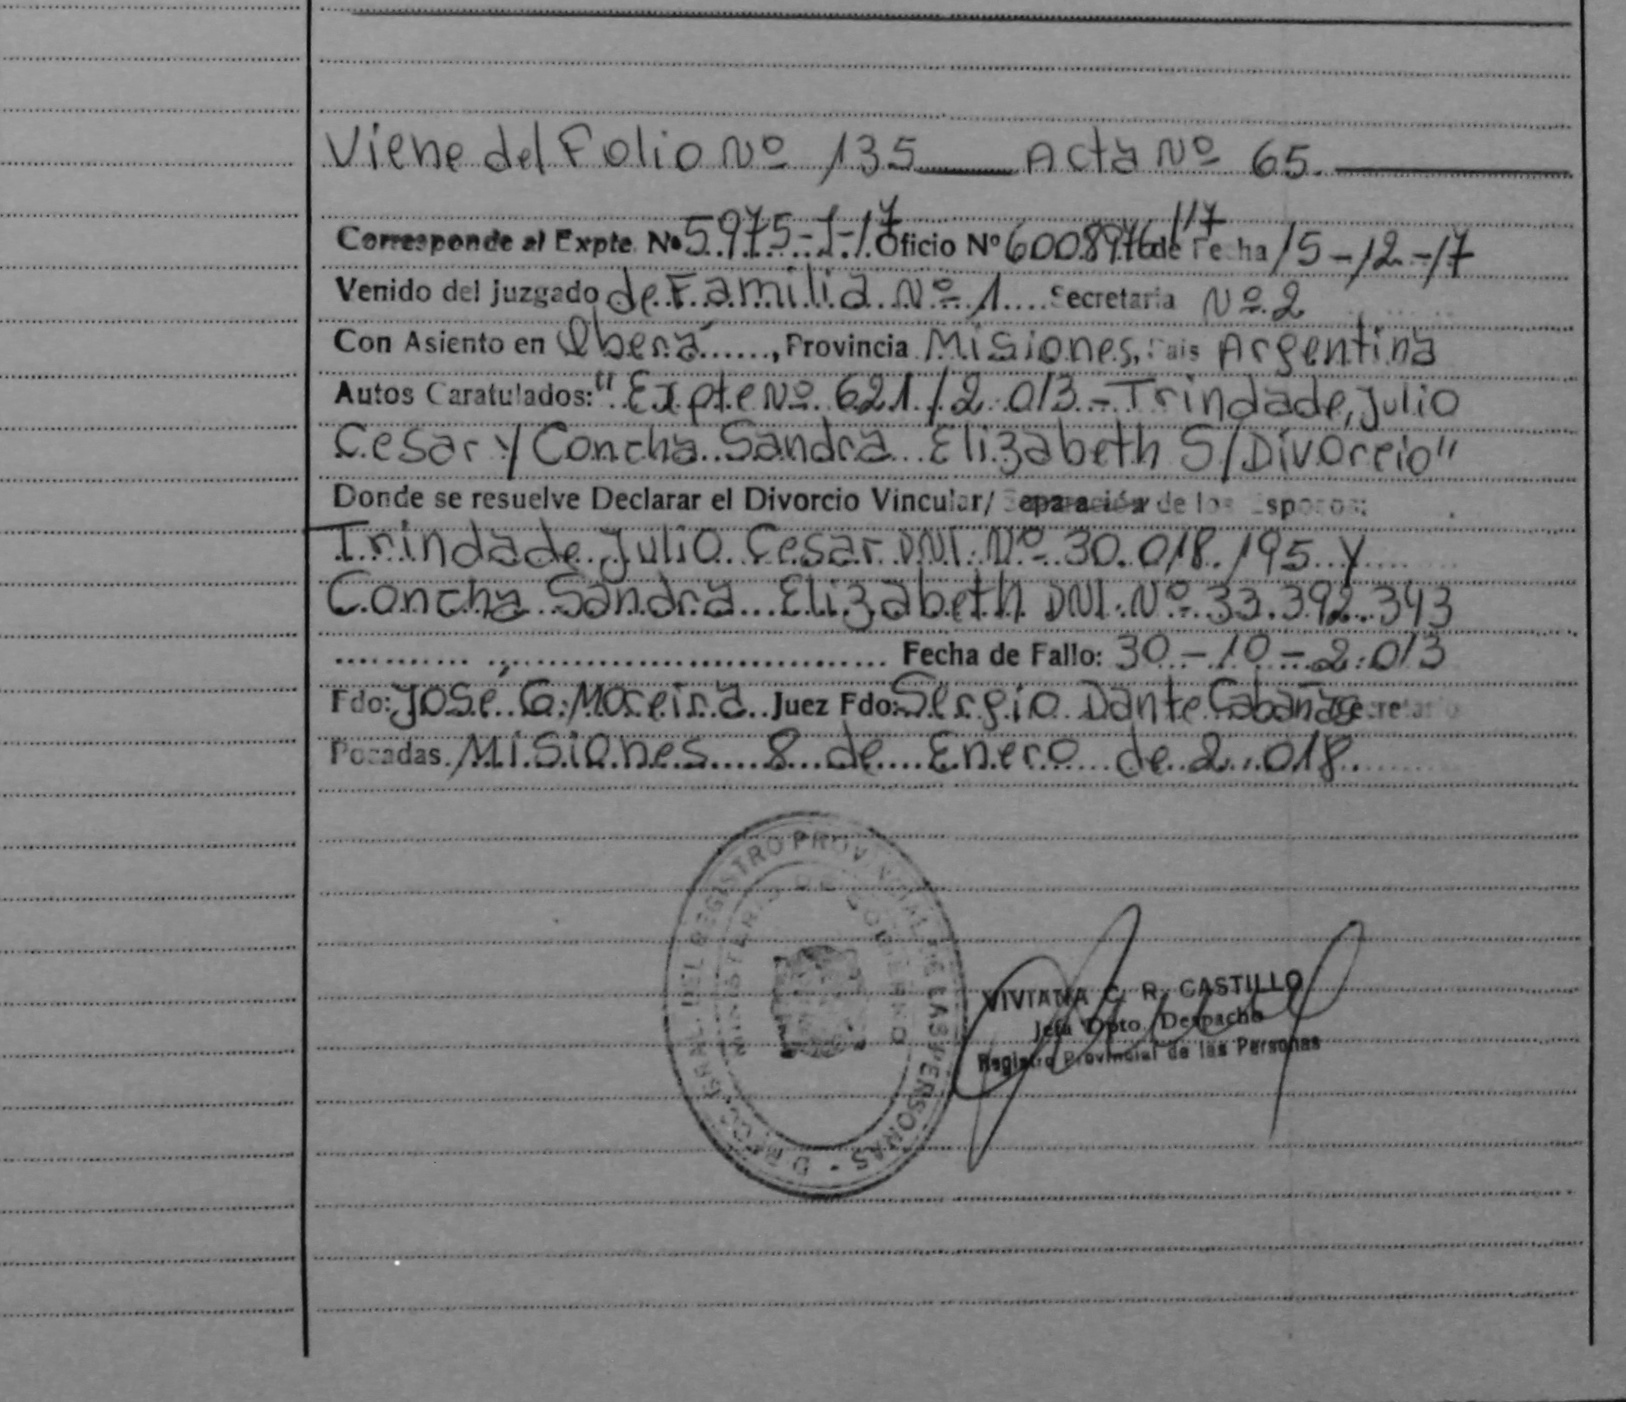 Viene del Folio Nº 135 Acta Nº 65.
Corresponde al Expte. Nº 5975-J-17 Oficio Nº 6008976/17 de Fecha 15-12-17
Venido del Juzgado de Familia Nº 1 Secretaria Nº 2
Con Asiento en Oberá, Provincia Misiones, Pais Argentina
Autos Caratulados: "Expte Nº 621/2.013 - Trindade, Julio
Cesar y Concha Sandra Elizabeth S/Divorcio"
Donde se resuelve Declarar el Divorcio Vincular/ Separación de los Esposos:
Trindade Julio Cesar DNI. Nº 30.018.195 y
Concha Sandra Elizabeth DNI. Nº 33.392.343
Fecha de Fallo: 30-10-2.013
Fdo: José G. Moreira Juez Fdo: Sergio Dante Cabañas Secretario
Posadas Misiones 8 de Enero de 2.018.
REGISTRO PROVINCIAL DE LAS PERSONAS
MINISTERIO DE GOBIERNO
VIVIANA C. R. CASTILLO
Jefa Dpto. Despacho
Registro Provincial de las Personas